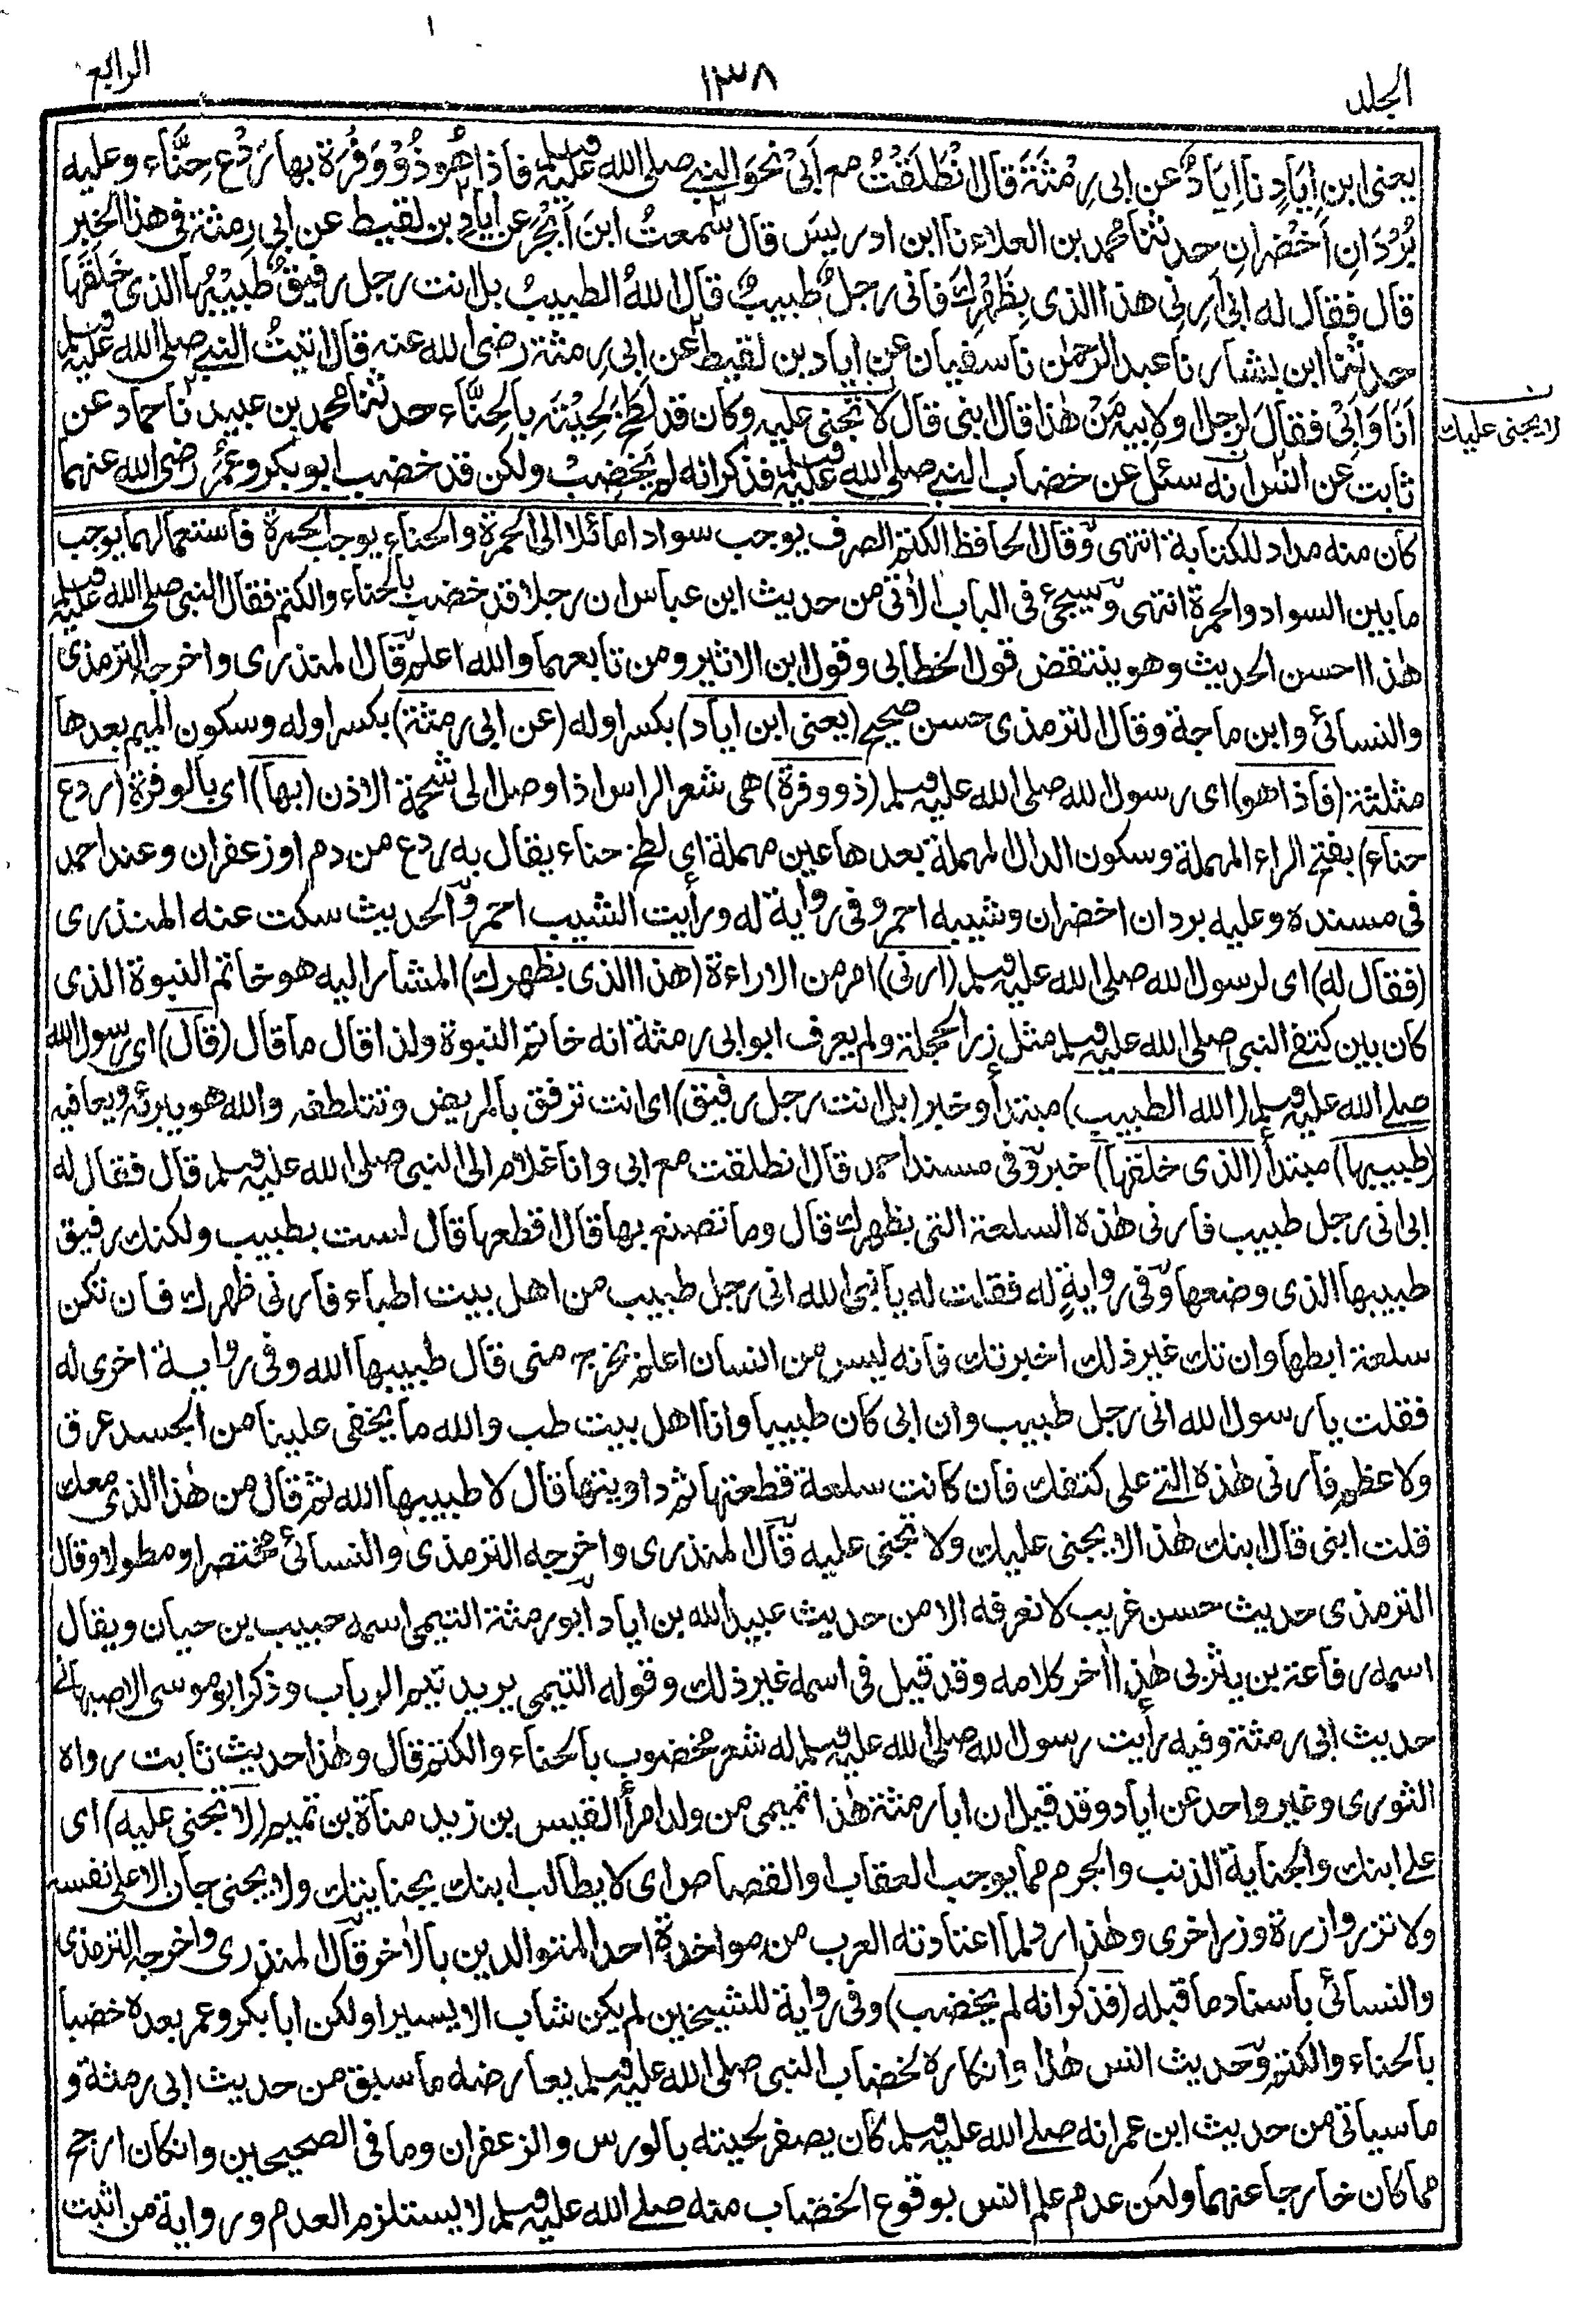 الجلد
١٣٨
الرابع
يعنى ابن اِيَادٍ نا اِيَادٌ عن ابى رِمْثَةَ قال انْطَلَقْتُ مع اَبِىْ نَحْوَ النبى صلى الله عليه وسلم فاذا هُوَ ذُوْ وَفْرَةٍ بها رَدْعُ حِنَّاءٍ وعليه
بُرْدَانِ اَخْضَرانِ حدثنا محمد بن العلاء نا ابن ادريس قال سَمعتُ ابنَ اَبْجُرَ عن اياد بن لقيط عن ابى رِمثة فى هذا الخبر
قال فقال له ابى اَرِنِى هذا الذى بِظَهْرِكَ فانى رجلٌ طبيبٌ قال اللهُ الطبيبُ بل انت رجل رفيقٌ طَبِيْبُهَا الذى خَلَقَهَا
حدثنا ابن بشار نا عبد الرحمٰن نا سفيان عن اياد بن لقيط عن ابى رِمثة رضى الله عنه قال اتيتُ النبى صلى الله عليه وسلم
اَنَا وَاَبِىْ فقالَ لرجل او لابيه مَنْ هٰذا قال ابنى قال لا تَجْنى عليه وكان قد لَطَخَ لِحْيَتَه بالحِنَّاء حدثنا محمد بن عبيد نا حماد عن
لا يجنى عليك
ثابت عن انس انه سئل عن خضاب النبى صلى الله عليه وسلم فذكر انه لم يَخْضِبْ ولكن قد خضب ابو بكر وعمر رضى الله عنهما
كان منه مداد للكتابة انتهى وقال الحافظ الكتم الصرف يوجب سوادا مائلا الى الحمرة والحناء يوجب الحمرة فاستعمالهما يوجب
ما بين السواد والحمرة انتهى وسيجئ فى الباب الأتى من حديث ابن عباس ان رجلا قد خضب بالحناء والكتم فقال النبى صلى الله عليه وسلم
هٰذا احسن الحديث وهو ينتقض قول الخطابى وقول ابن الاثير ومن تابعهما والله اعلم قال المنذرى واخرجه الترمذى
والنسائى وابن ماجة وقال الترمذى حسن صحيح (يعنى ابن اياد) بكسر اوله (عن ابى رمثة) بكسر اوله وسكون الميم بعدها
مثلثة (فاذا هو) اى رسول الله صلى الله عليه وسلم (ذو وفرة) هى شعر الراس اذا وصل الى شحمة الاذن (بها) اى بالوفرة (ردع
حناء) بفتح الراء المهملة وسكون الدال المهملة بعدها عين مهملة اى لطخ حناء يقال به ردع من دم او زعفران وعند احمد
فى مسنده وعليه بردان اخضران وشيبه احمر وفى رواية له ورأيت الشيب احمر والحديث سكت عنه المنذرى
(فقال له) اى لرسول الله صلى الله عليه وسلم (ارنى) امر من الاراءة (هذا الذى بظهرك) المشار اليه هو خاتم النبوة الذى
كان بين كتفى النبى صلى الله عليه وسلم مثل زر الحجلة ولم يعرف ابو ابى رمثة انه خاتم النبوة ولذا قال ما قال (قال) اى رسول الله
صلے الله عليه وسلم (الله الطبيب) مبتدأ وخبر (بل انت رجل رفيق) اى انت ترفق بالمريض وتتلطفه والله هو يبرئه ويعافيه
(طبيبها) مبتدأ (الذى خلقها) خبر وفى مسند احمد قال انطلقت مع ابى وانا غلام الى النبى صلى الله عليه وسلم قال فقال له
ابى انى رجل طبيب فارنى هٰذه السلعة التى بظهرك قال وما تصنع بها قال اقطعها قال لست بطبيب ولكنك رفيق
طبيبها الذى وضعها وفى روايةٍ له فقلت له يا نبى الله انى رجل طبيب من اهل بيت اطباء فارنى ظهرك فان تكن
سلعة ابطها وان تك غير ذلك اخبرتك فانه ليس من انسان اعلم بخرجه منى قال طبيبها الله وفى رواية اخرى له
فقلت يا رسول الله انى رجل طبيب وان ابى كان طبيبا وانا اهل بيت طب والله ما يخفى علينا من الجسد عرق
ولا عظم فارنى هٰذه التے على كتفك فان كانت سلعة قطعتها ثم داويتها قال لا طبيبها الله ثم قال من هٰذا الذى معك
قلت ابنى قال ابنك هٰذا لا يجنى عليك ولا تجنى عليه قال المنذرى واخرجه الترمذى والنسائى مختصرا ومطولا وقال
الترمذى حديث حسن غريب لا نعرفه الا من حديث عبيد الله بن اياد ابو رمثة التيمى اسمه حبيب بن حيان ويقال
اسمه رفاعة بن يثربى هٰذا أخر كلامه وقد قيل فى اسمه غير ذلك وقوله التيمى يريد تيم الرباب وذكر ابو موسى الاصبهانى
حديث ابى رمثة وفيه رأيت رسول الله صلى الله عليه وسلم له شعر مخضوب بالحناء والكتم قال وهٰذا حديث ثابت رواه
الثورى وغير واحد عن اياد وقد قيل ان ابا رمثة هٰذا تميمى من ولد امرأ القيس بن زيد مناة بن تميم (لا تجنى عليه) اى
علے ابنك والجناية الذنب والجرم مما يوجب العقاب او القصاص اى لا يطالب ابنك بجنايتك ولا يجنى جان الا على نفسه
ولا تزر وازرة وزر اخرى وهٰذا رد لما اعتادته العرب من مواخذة احد المتوالدين بالأخر قال المنذرى واخرجه الترمذى
والنسائى باسناد ما قبله (فذكر انه لم يخضب) وفى رواية للشيخين لم يكن شاب الا يسيرا ولكن ابا بكر وعمر بعده خضبا
بالحناء والكتم وحديث انس هٰذا وانكاره لخضاب النبى صلى الله عليه وسلم يعارضه ما سبق من حديث ابى رمثة و
ما سياتى من حديث ابن عمر انه صلے الله عليه وسلم كان يصفر لحيته بالورس والزعفران وما فى الصحيحين وانكان ارجح
مما كان خارجا عنهما ولكن عدم علم انس بوقوع الخضاب منه صلے الله عليه وسلم لا يستلزم العدم ورواية من اثبت